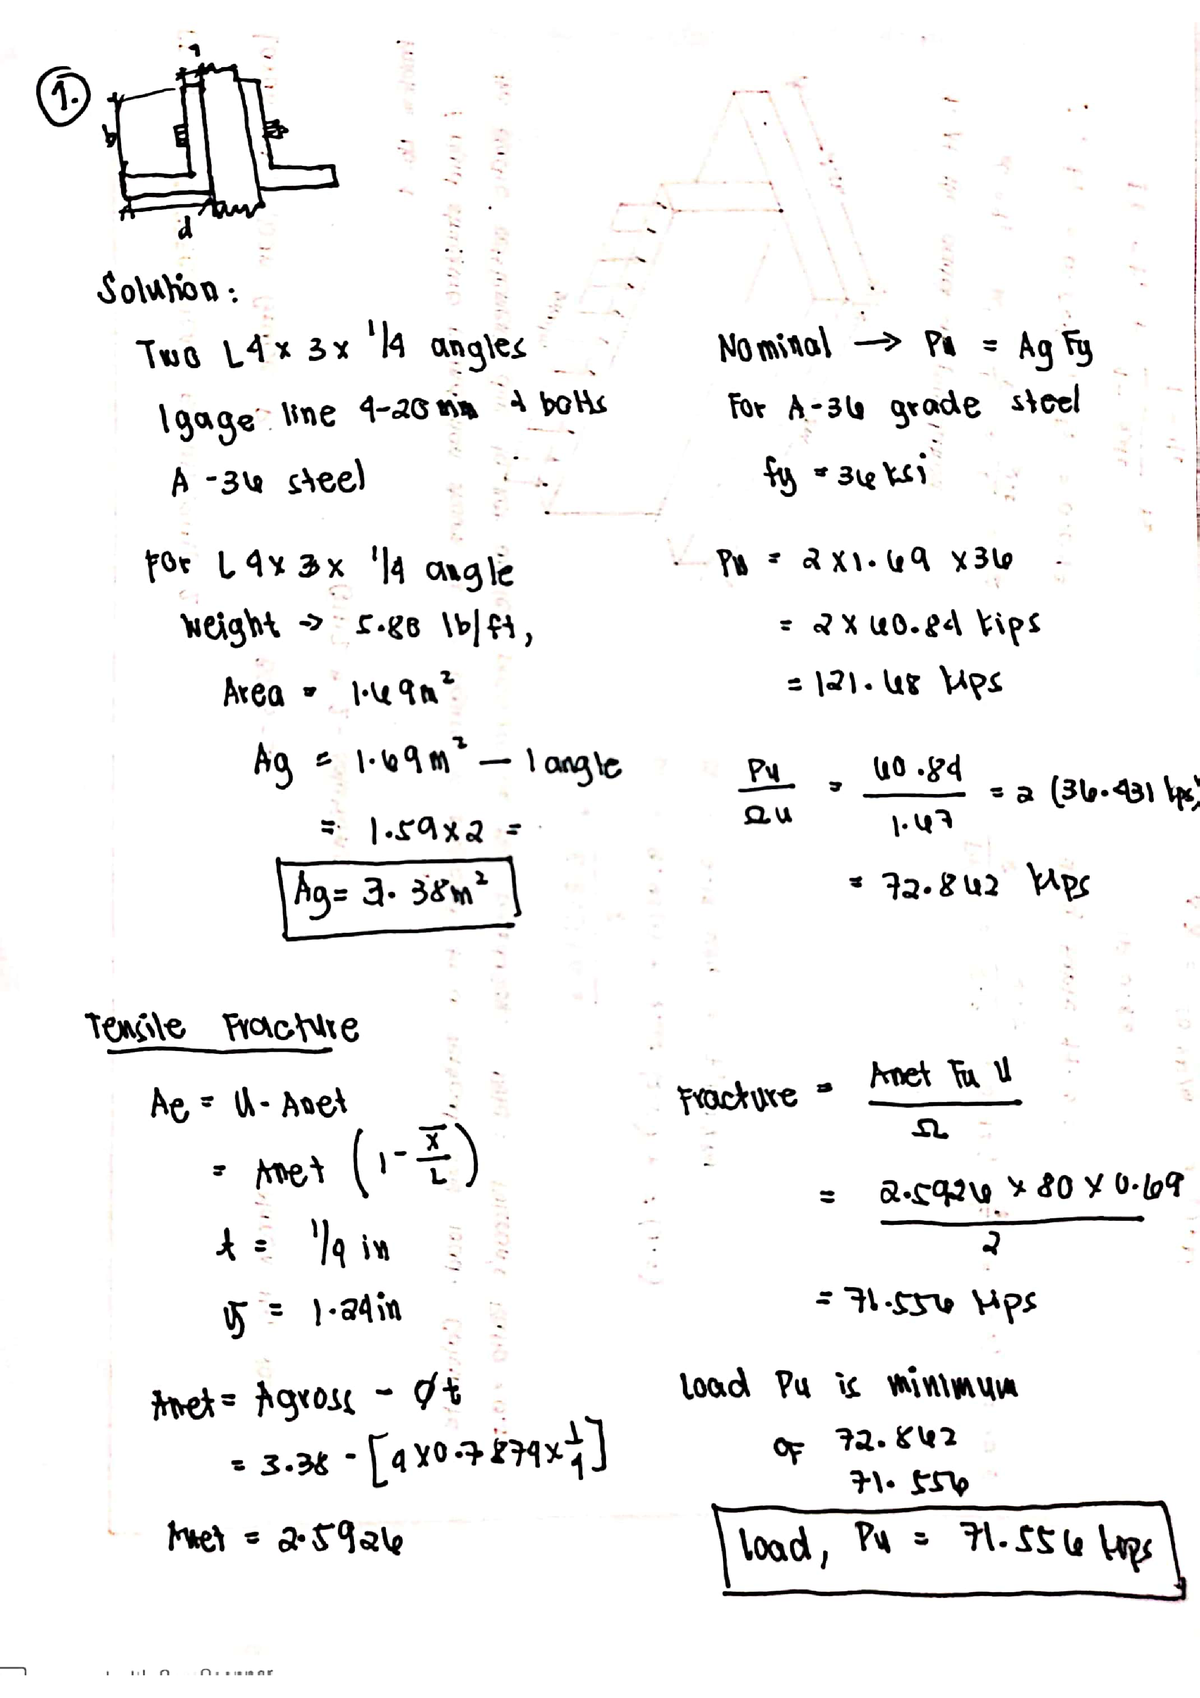 1.
b
d
Solution:
Two L4 x 3 x 1/4 angles
1 gage line 4-20 mm bolts
A-36 steel
For L 4 x 3 x 1/4 angle
Weight → 5.80 lb/ft,
Area = 1.69 m²
Ag = 1.69 m² — 1 angle
= 1.59 x 2 =
Ag = 3.38 m²
Nominal → Pn = Ag Fy
For A-36 grade steel
fy = 36 ksi
Pn = 2 x 1.69 x 36
= 2 x 60.84 kips
= 121.68 kips
Pu/Ωu = 60.84/1.67 = 2 (36.431 kps)
= 72.862 kips
Tensile Fracture
Ae = U - Anet
= Anet (1 - x̅/L)
t = 1/4 in
y̅ = 1.24 in
Anet = Agross - Øt
= 3.38 - [4 x 0.7874 x 1/4]
Anet = 2.5926
Fracture = Anet Fu U / Ω
= 2.5926 x 80 x 0.69 / 2
= 71.556 kips
Load Pu is minimum
of 72.862
71.556
Load, Pu = 71.556 kips